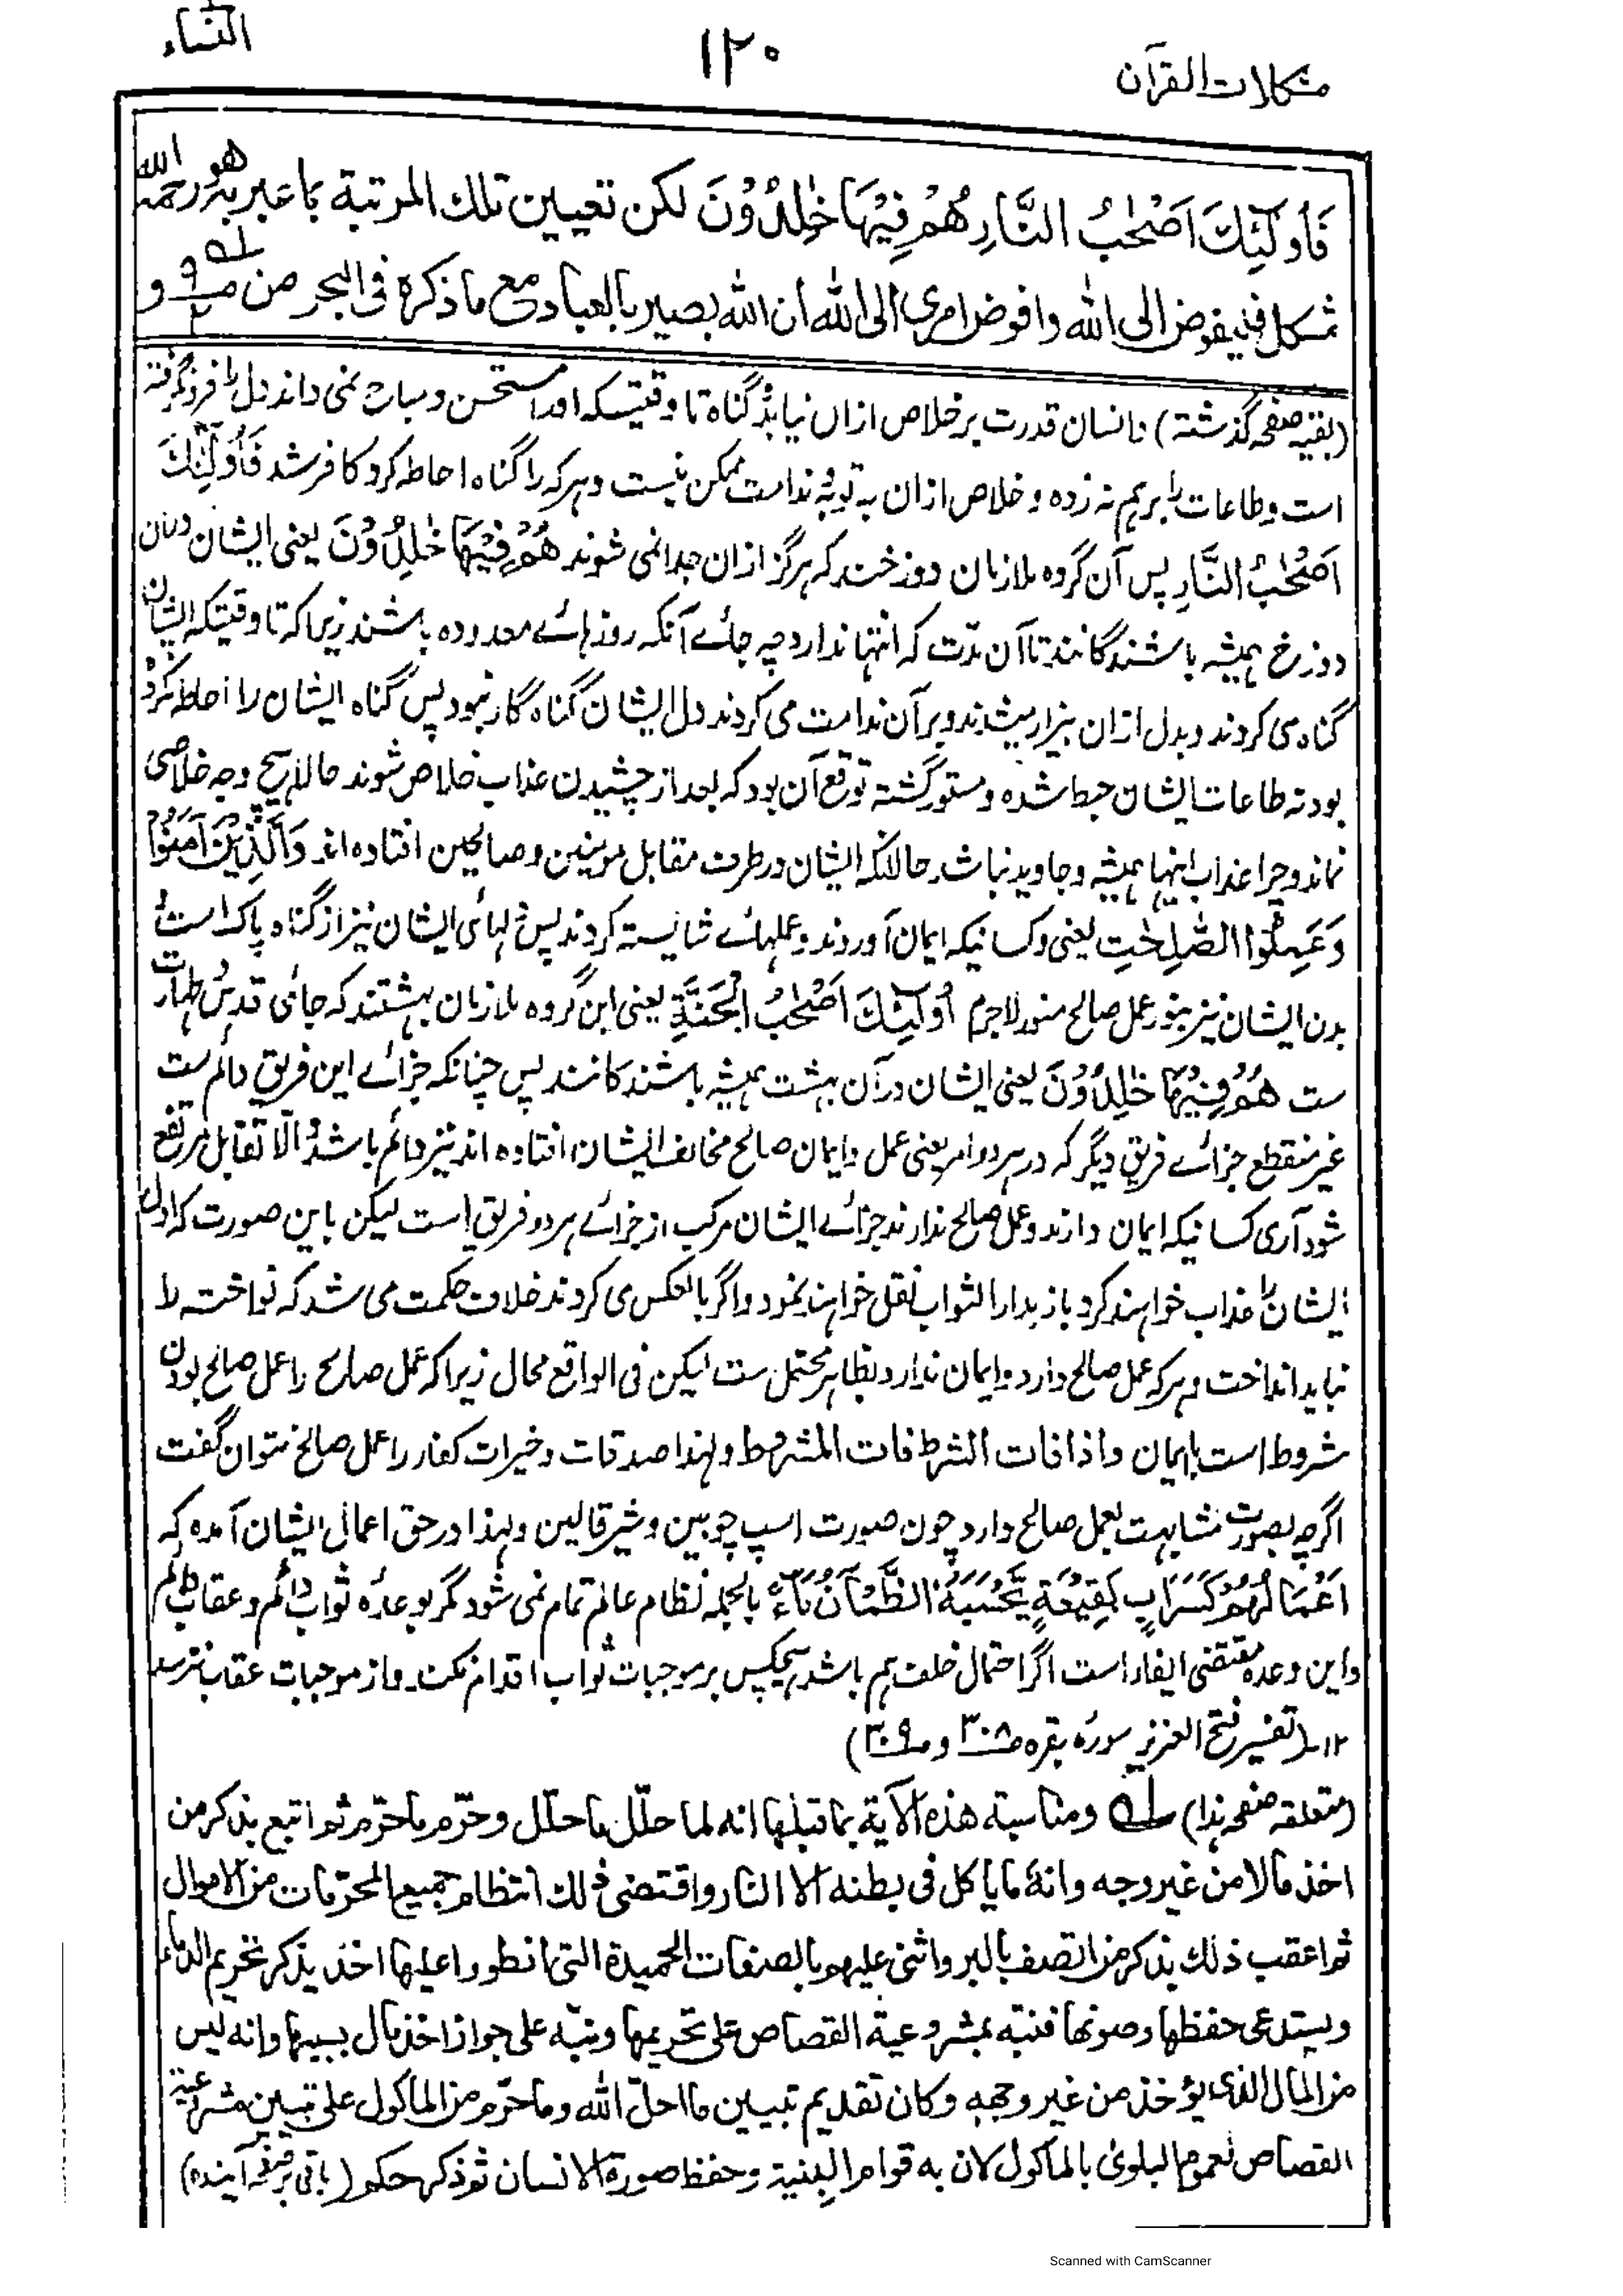 مشکلات القرآن
۱۲۰
النساء
فَأُولٰٓئِكَ اَصْحٰبُ النَّارِ هُمْ فِيْهَا خٰلِدُوْنَ لکن تعیین تلك المرتبة بما عبر به هو رحمه الله
مشکل فنیفوض الی الله وافوض امری الی الله ان الله بصیر بالعباد مع ما ذکره فی البحر من و
(بقیہ صفحہ گذشتہ) انسان قدرت بر خلاص ازان نیابد گناہ تا وقتیکہ اورا مستحسن و مباح نمی داند دل را فرو نگرفتہ
است و طاعات را برہم نہ زدہ و خلاص ازان بہ توبہ و ندامت ممکن نیست و ہر کہ را گناہ احاطہ کرد کافر شد فَأُولٰٓئِكَ
اَصْحٰبُ النَّارِ پس آن گروہ ملازمان دوزخند کہ ہرگز ازان جدا نمی شوند هُمْ فِيْهَا خٰلِدُوْنَ یعنی ایشان دران
دوزخ ہمیشہ باشندگانند تا آن مدت کہ انتہا ندارد چہ جائے آنکہ روزہائے معدودہ باشند زیرا کہ تا وقتیکہ ایشان
گناہ می کردند و بدل ازان بیزار میشدند و برآن ندامت می کردند دل ایشان گناہ گار نبود پس گناہ ایشان را احاطہ نکردہ
بود نہ طاعات ایشان حبط شدہ و مستور گشتہ توقع آن بود کہ بعد از چشیدن عذاب خلاص شوند حالا ہیچ وجہ خلاصی
نماند و چرا عذاب اینہا ہمیشہ و جاوید نباشد حالانکہ ایشان در طرف مقابل مومنین و صالحین افتادہ اند وَالَّذِيْنَ اٰمَنُوْا
وَعَمِلُوا الصّٰلِحٰتِ یعنی و کسانیکہ ایمان آوردند و عملہائے شایستہ کردند پس دلہای ایشان نیز از گناہ پاک است و
بدن ایشان نیز بنور عمل صالح منور لاجرم اُولٰٓئِكَ اَصْحٰبُ الْجَنَّةِ یعنی این گروہ ملازمان بہشتند کہ جائی قدس و طہارت
ست هُمْ فِيْهَا خٰلِدُوْنَ یعنی ایشان درآن بہشت ہمیشہ باشندگانند پس چنانکہ جزائے این فریق دائم ست
غیر منقطع جزائے فریق دیگر کہ در ہر دو امر یعنی عمل و ایمان صالح مخالف ایشان افتادہ اند نیز دائم باشد و الا تقابل مرتفع
شود آری کسانیکہ ایمان دارند و عمل صالح ندارند جزائے ایشان مرکب از جزائے ہر دو فریق است لیکن باین صورت کہ اول
ایشان را عذاب خواہند کرد باز بدار الثواب نقل خواہند نمود و اگر بالعکس می کردند خلاف حکمت می شد کہ نواختہ را
نباید انداخت و ہر کہ عمل صالح دارد و ایمان ندارد بظاہر محتمل ست لیکن فی الواقع محال زیرا کہ عمل صالح را عمل صالح بودن
مشروط است بایمان واذا فات الشرط فات المشروط ولہذا صدقات و خیرات کفار را عمل صالح نتوان گفت
اگرچہ بصورت مشابہت بعمل صالح دارد چون صورت اسپ چوبین و شیر قالین ولہذا در حق اعمال ایشان آمدہ کہ
اَعْمَالُهُمْ كَسَرَابٍ بِقِيْعَةٍ يَّحْسَبُهُ الظَّمْاٰنُ مَآءً بالجملہ نظام عالم تمام نمی شود مگر بوعدۂ ثواب دائم و عقاب دائم
و این وعدہ مقتضی ایفاء است اگر احتمال خلف ہم باشد ہیچکس بر موجبات ثواب اقدام نکند و از موجبات عقاب نترسد
۱۲۔ (تفسیر فتح العزیز سورۂ بقرہ ص۳۰۸ و ص۳۰۹)
(متعلقہ صفحہ ہذا) لہ ومناسبة هذه الآية بما قبلها انه لما حلّل ما حلّل وحرّم ما حرّم ثم اتبع بذكر من
اخذ مالا من غير وجه وانه ما ياكل فى بطنه الا النار واقتضى ذلك انتظام جميع المحرّمات من الاموال
ثم اعقب ذلك بذكر من اتصف بالبر واثنى عليهم بالصفات الحميدة التى انطووا عليها اخذ يذكر تحريم الدماء
ويستدعى حفظها وصونها فنبّه بمشروعية القصاص على تحريمها ونبّه على جواز اخذ مال بسببها وانه ليس
من المال الذى يؤخذ من غير وجهه وكان تقديم تبيين ما احلّ الله وما حرّم من الماكول على تبيين مشروعية
القصاص لعموم البلوى بالماكول لان به قوام البنية وحفظ صورة الانسان ثم ذكر حكم (باقی بر صفحہ آیندہ)
Scanned with CamScanner